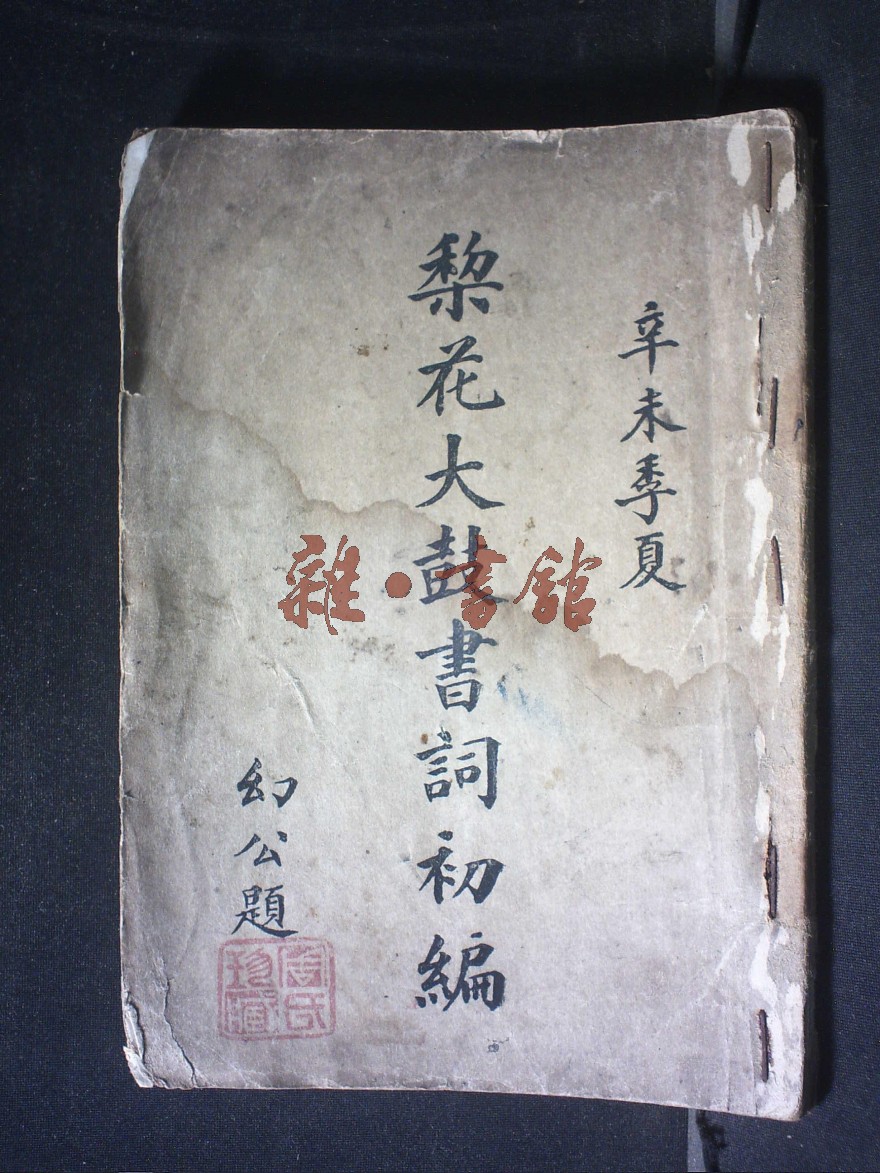 辛未季夏
棃花大鼓書詞初編
幻公題
周氏珍藏
雜·書館